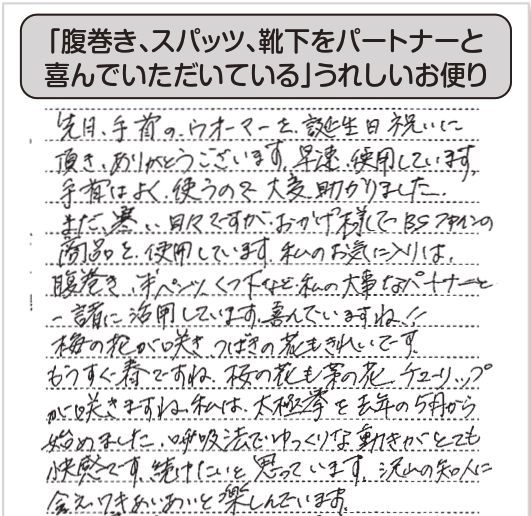 「腹巻き、スパッツ、靴下をパートナーと
喜んでいただいている」うれしいお便り
先日、手首の、ウオーマーを、誕生日祝いに
頂き、ありがとうございます。早速、使用しています。
手首はよく、使うので大変助かりました。
まだ、寒い日々ですが、おかげ様で、BSファインの
商品を、使用しています。私のお気に入りは、
腹巻き、半パンツ、くつ下など、私の大事なパートナーと
一諸に活用しています。喜んでいますね!!
梅の花が咲き、つばきの花もきれいです。
もうすぐ春ですね。桜の花も、菜の花、チューリップ
が咲きますね。私は、太極拳を去年の5月から
始めました。呼吸法でゆっくりな動きがとても
快感です。続けたいと思っています。沢山の知人に
会え、わきあいあいと楽しんでいます。